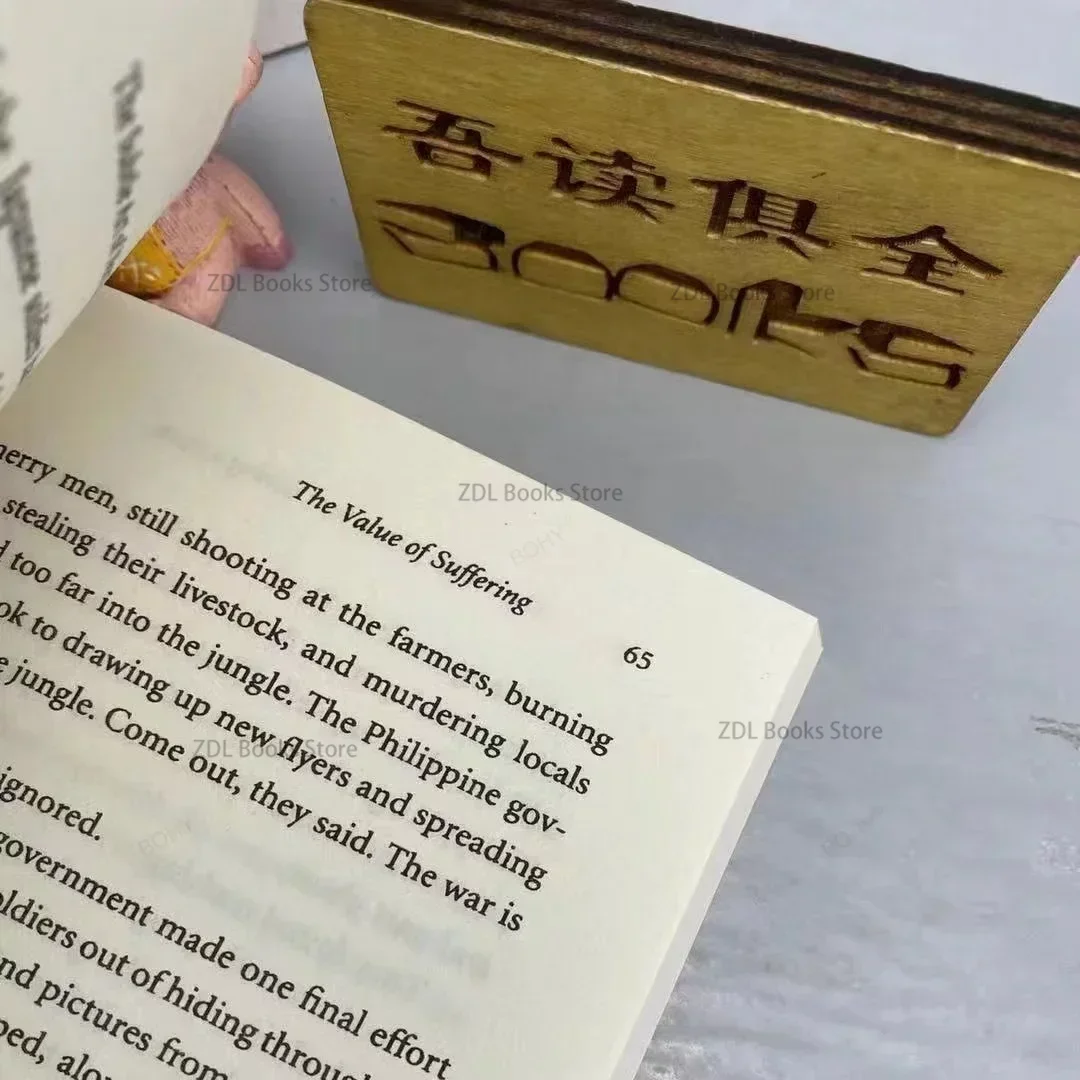 吾读俱全
Books
The Value of Suffering
65
merry men, still shooting at the farmers, burning
stealing their livestock, and murdering locals
too far into the jungle. The Philippine gov-
to drawing up new flyers and spreading
jungle. Come out, they said. The war is
ignored.
government made one final effort
soldiers out of hiding through
and pictures from
ZDL Books Store
ZDL Books Store
ZDL Books Store
ZDL Books Store
ZDL Books Store
BOHY
BOHY